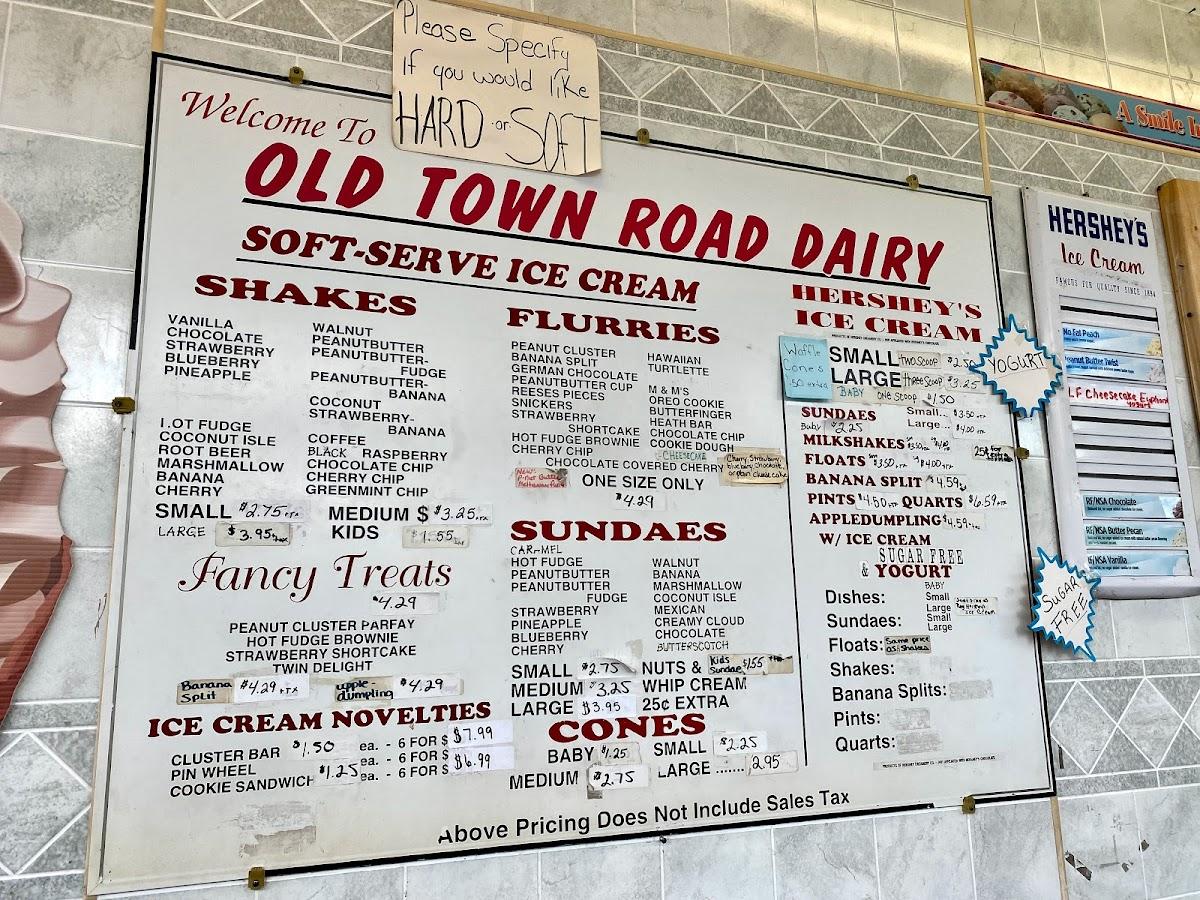 Please Specify
if you would like
HARD or SOFT
Welcome To
OLD TOWN ROAD DAIRY
SOFT-SERVE ICE CREAM
SHAKES
VANILLA
CHOCOLATE
STRAWBERRY
BLUEBERRY
PINEAPPLE
.OT FUDGE
COCONUT ISLE
ROOT BEER
MARSHMALLOW
BANANA
CHERRY
WALNUT
PEANUTBUTTER
PEANUTBUTTER-
FUDGE
PEANUTBUTTER-
BANANA
COCONUT
STRAWBERRY-
BANANA
COFFEE
BLACK RASPBERRY
CHOCOLATE CHIP
CHERRY CHIP
GREENMINT CHIP
SMALL $2.75+TX MEDIUM $ $3.25+TX
LARGE $3.95 KIDS $1.55
Fancy Treats
$4.29
PEANUT CLUSTER PARFAY
HOT FUDGE BROWNIE
STRAWBERRY SHORTCAKE
TWIN DELIGHT
Banana Split $4.29+TX apple-dumpling $4.29
ICE CREAM NOVELTIES
CLUSTER BAR $1.50 ea. - 6 FOR $ $7.99
PIN WHEEL ea. - 6 FOR $
COOKIE SANDWICH $1.25 ea. - 6 FOR $ $6.99
FLURRIES
PEANUT CLUSTER
BANANA SPLIT
GERMAN CHOCOLATE
PEANUTBUTTER CUP
REESES PIECES
SNICKERS
STRAWBERRY
SHORTCAKE
HOT FUDGE BROWNIE
CHERRY CHIP
HAWAIIAN
TURTLETTE
M & M'S
OREO COOKIE
BUTTERFINGER
HEATH BAR
CHOCOLATE CHIP
COOKIE DOUGH
CHEESECAKE
CHOCOLATE COVERED CHERRY
ONE SIZE ONLY
$4.29
SUNDAES
CARAMEL
HOT FUDGE
PEANUTBUTTER
PEANUTBUTTER
FUDGE
STRAWBERRY
PINEAPPLE
BLUEBERRY
CHERRY
WALNUT
BANANA
MARSHMALLOW
COCONUT ISLE
MEXICAN
CREAMY CLOUD
CHOCOLATE
BUTTERSCOTCH
SMALL $2.75 NUTS & Kids Sundae $1.55
MEDIUM $3.25 WHIP CREAM
LARGE $3.95 25¢ EXTRA
CONES
BABY $1.25 SMALL $2.25
MEDIUM $2.75 LARGE ....... 2.95
Above Pricing Does Not Include Sales Tax
HERSHEY'S
ICE CREAM
Waffle
Cones
.50 extra
SMALL Two Scoop $2.50
LARGE Three Scoop $3.25
BABY ONE Scoop $1.50
SUNDAES Small... $3.50
Baby $2.25 Large... $4.00
MILKSHAKES
FLOATS $3.50 $4.00
BANANA SPLIT $4.59
PINTS $4.50 QUARTS $6.59
APPLEDUMPLING $4.59
W/ ICE CREAM
SUGAR FREE
& YOGURT
BABY
Dishes: Small
Large
Sundaes: Small
Large
Floats: Same price as Shakes
Shakes:
Banana Splits:
Pints:
Quarts:
YOGURT
SUGAR
FREE
A Smile
HERSHEY'S
Ice Cream
FAMOUS FOR QUALITY SINCE 1894
No Fat Peach
Peanut Butter Twist
LF Cheesecake
RF/NSA Chocolate
RF/NSA Butter Pecan
RF/NSA Vanilla